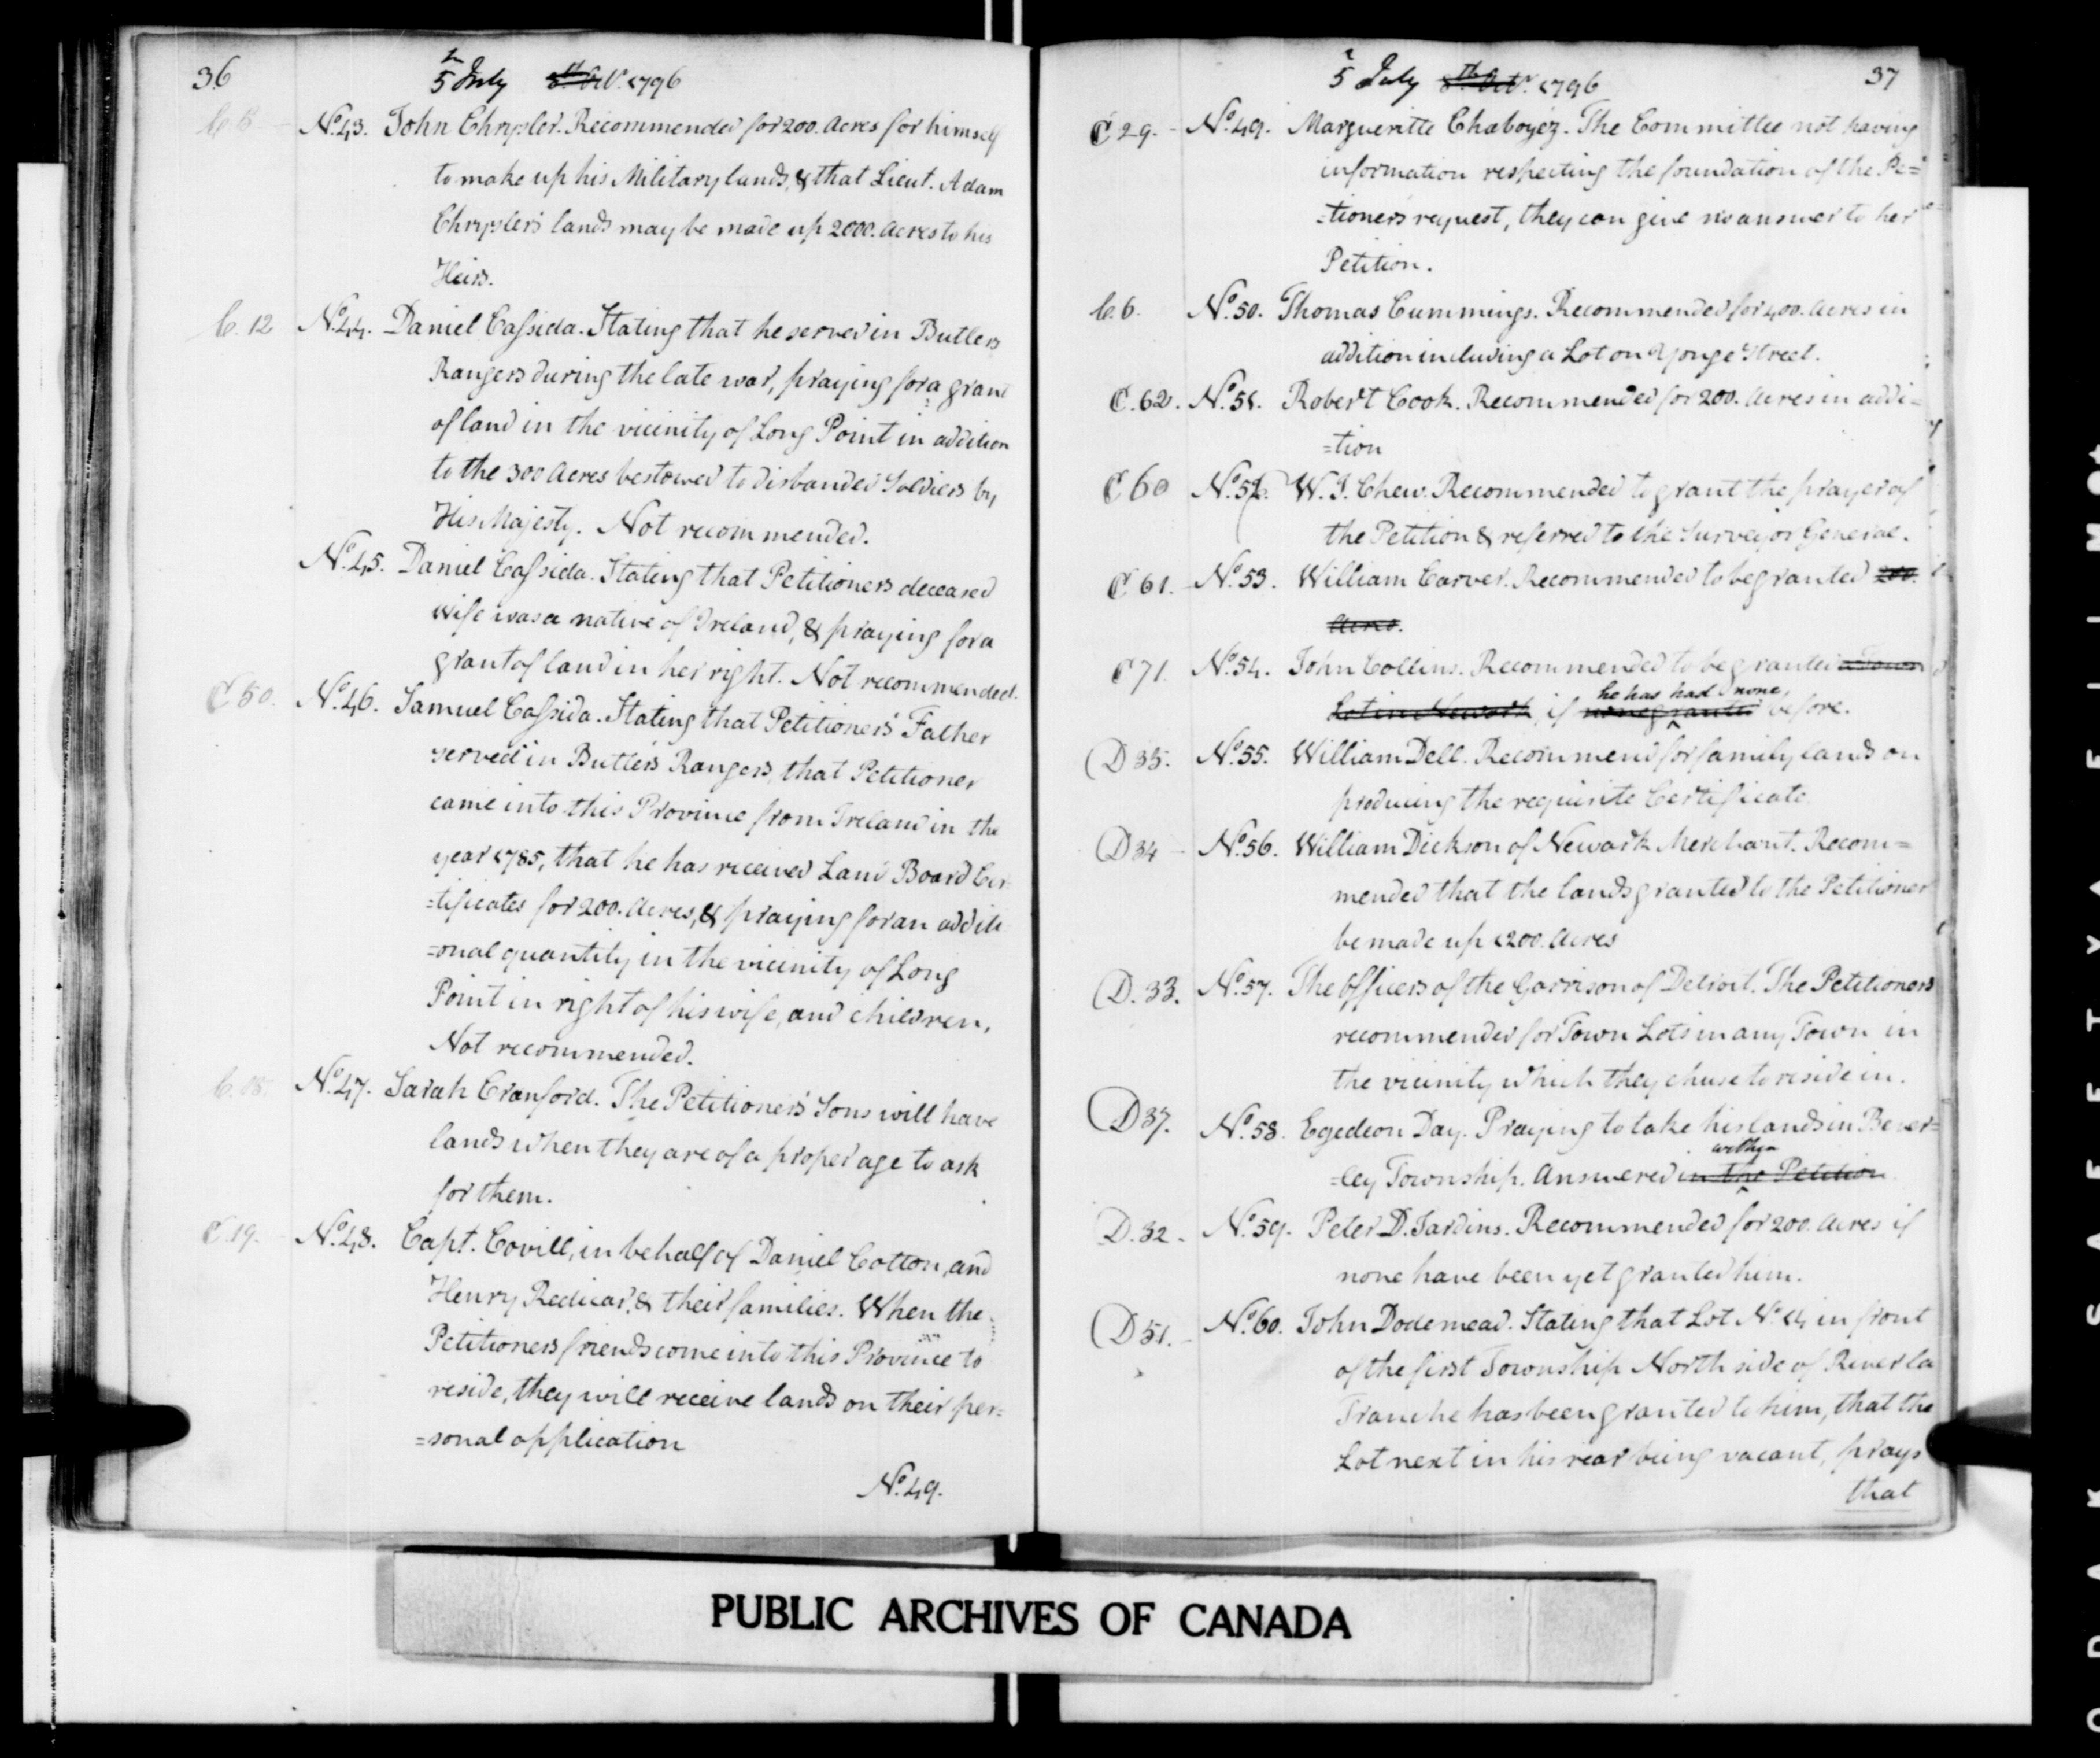 36
5th July 8th Octr. 1796
No. 43. John Chrysler. Recommended for 200. Acres for himself
to make up his Military lands, & that Lieut. Adam
Chrysler's lands may be made up 2000. Acres to his
Heirs.
C. 12 No. 44. Daniel Cassida. Stating that he served in Butlers
Rangers during the late war, praying for a grant
of land in the vicinity of Long Point in addition
to the 300 Acres bestowed to disbanded Soldiers by
His Majesty. Not recommended.
No. 45. Daniel Cassida. Stating that Petitioners deceased
Wife was a native of Ireland, & praying for a
grant of land in her right. Not recommended.
C 50. No. 46. Samuel Cassida. Stating that Petitioner's Father
served in Butler's Rangers, that Petitioner
came into this Province from Ireland in the
year 1785, that he has received Land Board Cer
=tificates for 200. Acres, & praying for an additi
=onal quantity in the vicinity of Long
Point in right of his wife, and children,
Not recommended.
No. 47. Sarah Cranford. The Petitioner's Sons will have
lands when they are of a proper age to ask
for them.
C. 19. No. 48. Capt. Covill, in behalf of Daniel Cotton, and
Henry Redicar, & their families. When the
Petitioners friends come into this Province to
reside, they will receive lands on their per=
=sonal application
No. 49.
5 July 8th Octr. 1796
37
C 29. No. 49. Margueritte Chaboyéz. The Committee not having
information respecting the foundation of the Pe=
=tioners request, they can give no answer to her
Petition.
C. 6. No. 50. Thomas Cummings. Recommended for 400. Acres in
addition including a Lot on Yonge Street.
C. 62. No. 51. Robert Cook. Recommended for 200. Acres in addi=
=tion
C 60 No. 52. W. J. Chew. Recommended to grant the prayer of
the Petition & referred to the Surveyor General.
C 61. No. 53. William Carver. Recommended to be granted 200.
Acres.
C 71. No. 54. John Collins. Recommended to be granted a Town
he has had none,
Lot in Newark, if none granted before.
D 35. No. 55. William Dell. Recommend for family lands on
producing the requisite Certificate
D 34 No. 56. William Dickson of Newark Merchant. Recom=
mended that the lands granted to the Petitioner
be made up 1200. Acres
D. 33. No. 57. The Officers of the Garrison of Detroit. The Petitioners
recommended for Town Lots in any Town in
the vicinity which they chuse to reside in.
D 37. No. 58. Egedeon Day. Praying to take his lands in Bever=
within
=ley Township. Answered in the Petition
D. 32. No. 59. Peter D. Jardins. Recommended for 200. Acres if
none have been yet granted him.
D 51. No. 60. John Dodemead. Stating that Lot No. 14 in front
of the first Township North side of River la
Tranche has been granted to him, that the
Lot next in his rear being vacant, prays
that
PUBLIC ARCHIVES OF CANADA